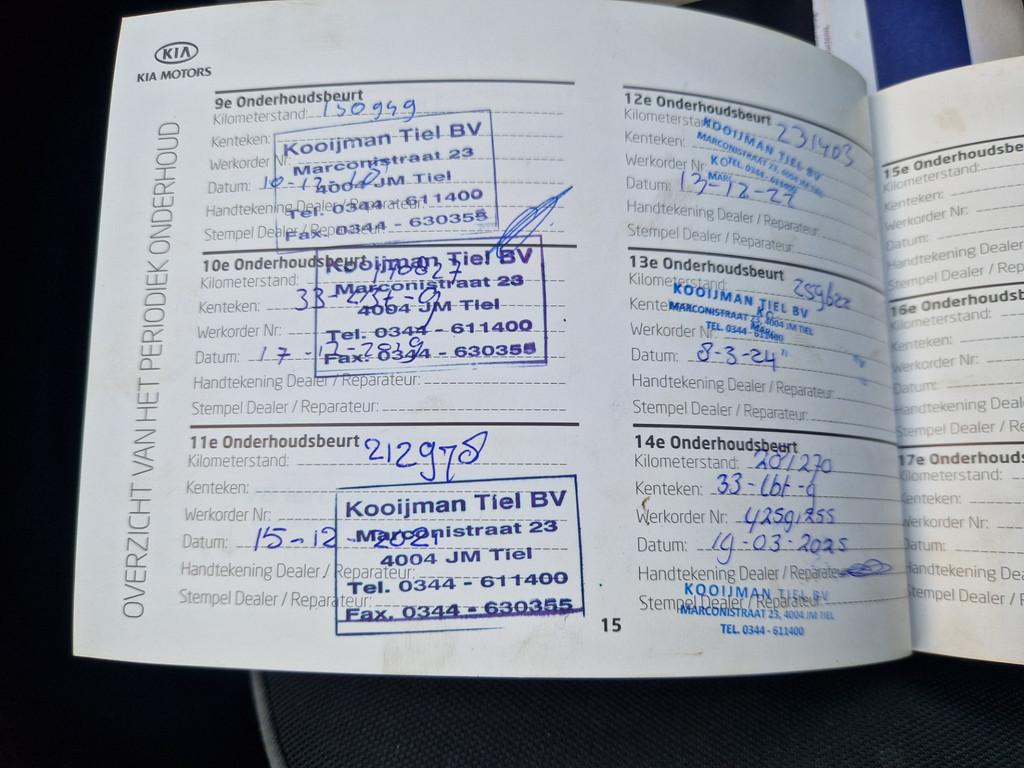 KIA
KIA MOTORS
OVERZICHT VAN HET PERIODIEK ONDERHOUD
9e Onderhoudsbeurt
Kilometerstand: 150949
Kenteken:
Werkorder Nr:
Datum: 10-12
Handtekening Dealer / Reparateur:
Stempel Dealer / Reparateur:
Kooijman Tiel BV
Marconistraat 23
4004 JM Tiel
Tel. 0344 - 611400
Fax. 0344 - 630355
10e Onderhoudsbeurt
Kilometerstand:
Kenteken: 33-
Werkorder Nr:
Datum: 17-12-2019
Handtekening Dealer / Reparateur:
Stempel Dealer / Reparateur:
Kooijman Tiel BV
Marconistraat 23
4004 JM Tiel
Tel. 0344 - 611400
Fax. 0344 - 630355
11e Onderhoudsbeurt
Kilometerstand: 212978
Kenteken:
Werkorder Nr:
Datum: 15-12-2021
Handtekening Dealer / Reparateur:
Stempel Dealer / Reparateur:
Kooijman Tiel BV
Marconistraat 23
4004 JM Tiel
Tel. 0344 - 611400
Fax. 0344 - 630355
12e Onderhoudsbeurt
Kilometersta 231403
Kenteken:
Werkorder Nr
Datum: 13-12-22
Handtekening Dealer / Reparateur:
Stempel Dealer / Reparateur:
KOOIJMAN TIEL BV
MARCONISTRAAT 23, 4004 JM TIEL
TEL. 0344-611400
13e Onderhoudsbeurt
Kilometerstand: 259622
Kenteken
Werkorder Nr
Datum: 8-3-24
Handtekening Dealer / Reparateur:
Stempel Dealer / Reparateur:
KOOIJMAN TIEL BV
MARCONISTRAAT 23, 4004 JM TIEL
TEL. 0344-611400
14e Onderhoudsbeurt
Kilometerstand: 201270
Kenteken: 33-
Werkorder Nr: 4259255
Datum: 19-03-2025
Handtekening Dealer / Reparateur
Stempel Dealer / Reparateur:
KOOIJMAN TIEL BV
MARCONISTRAAT 23, 4004 JM TIEL
TEL. 0344 - 611400
15
15e Onderhoudsbe
Kilometerstand:
Kenteken:
Werkorder Nr:
Datum:
Handtekening Dealer
Stempel Dealer / Rep
16e Onderhoudsb
Kilometerstand:
Kenteken:
Werkorder Nr:
Datum:
Handtekening Deal
Stempel Dealer / Re
17e Onderhouds
Kilometerstand:
Kenteken:
Werkorder Nr:
Datum:
Handtekening De
Stempel Dealer /